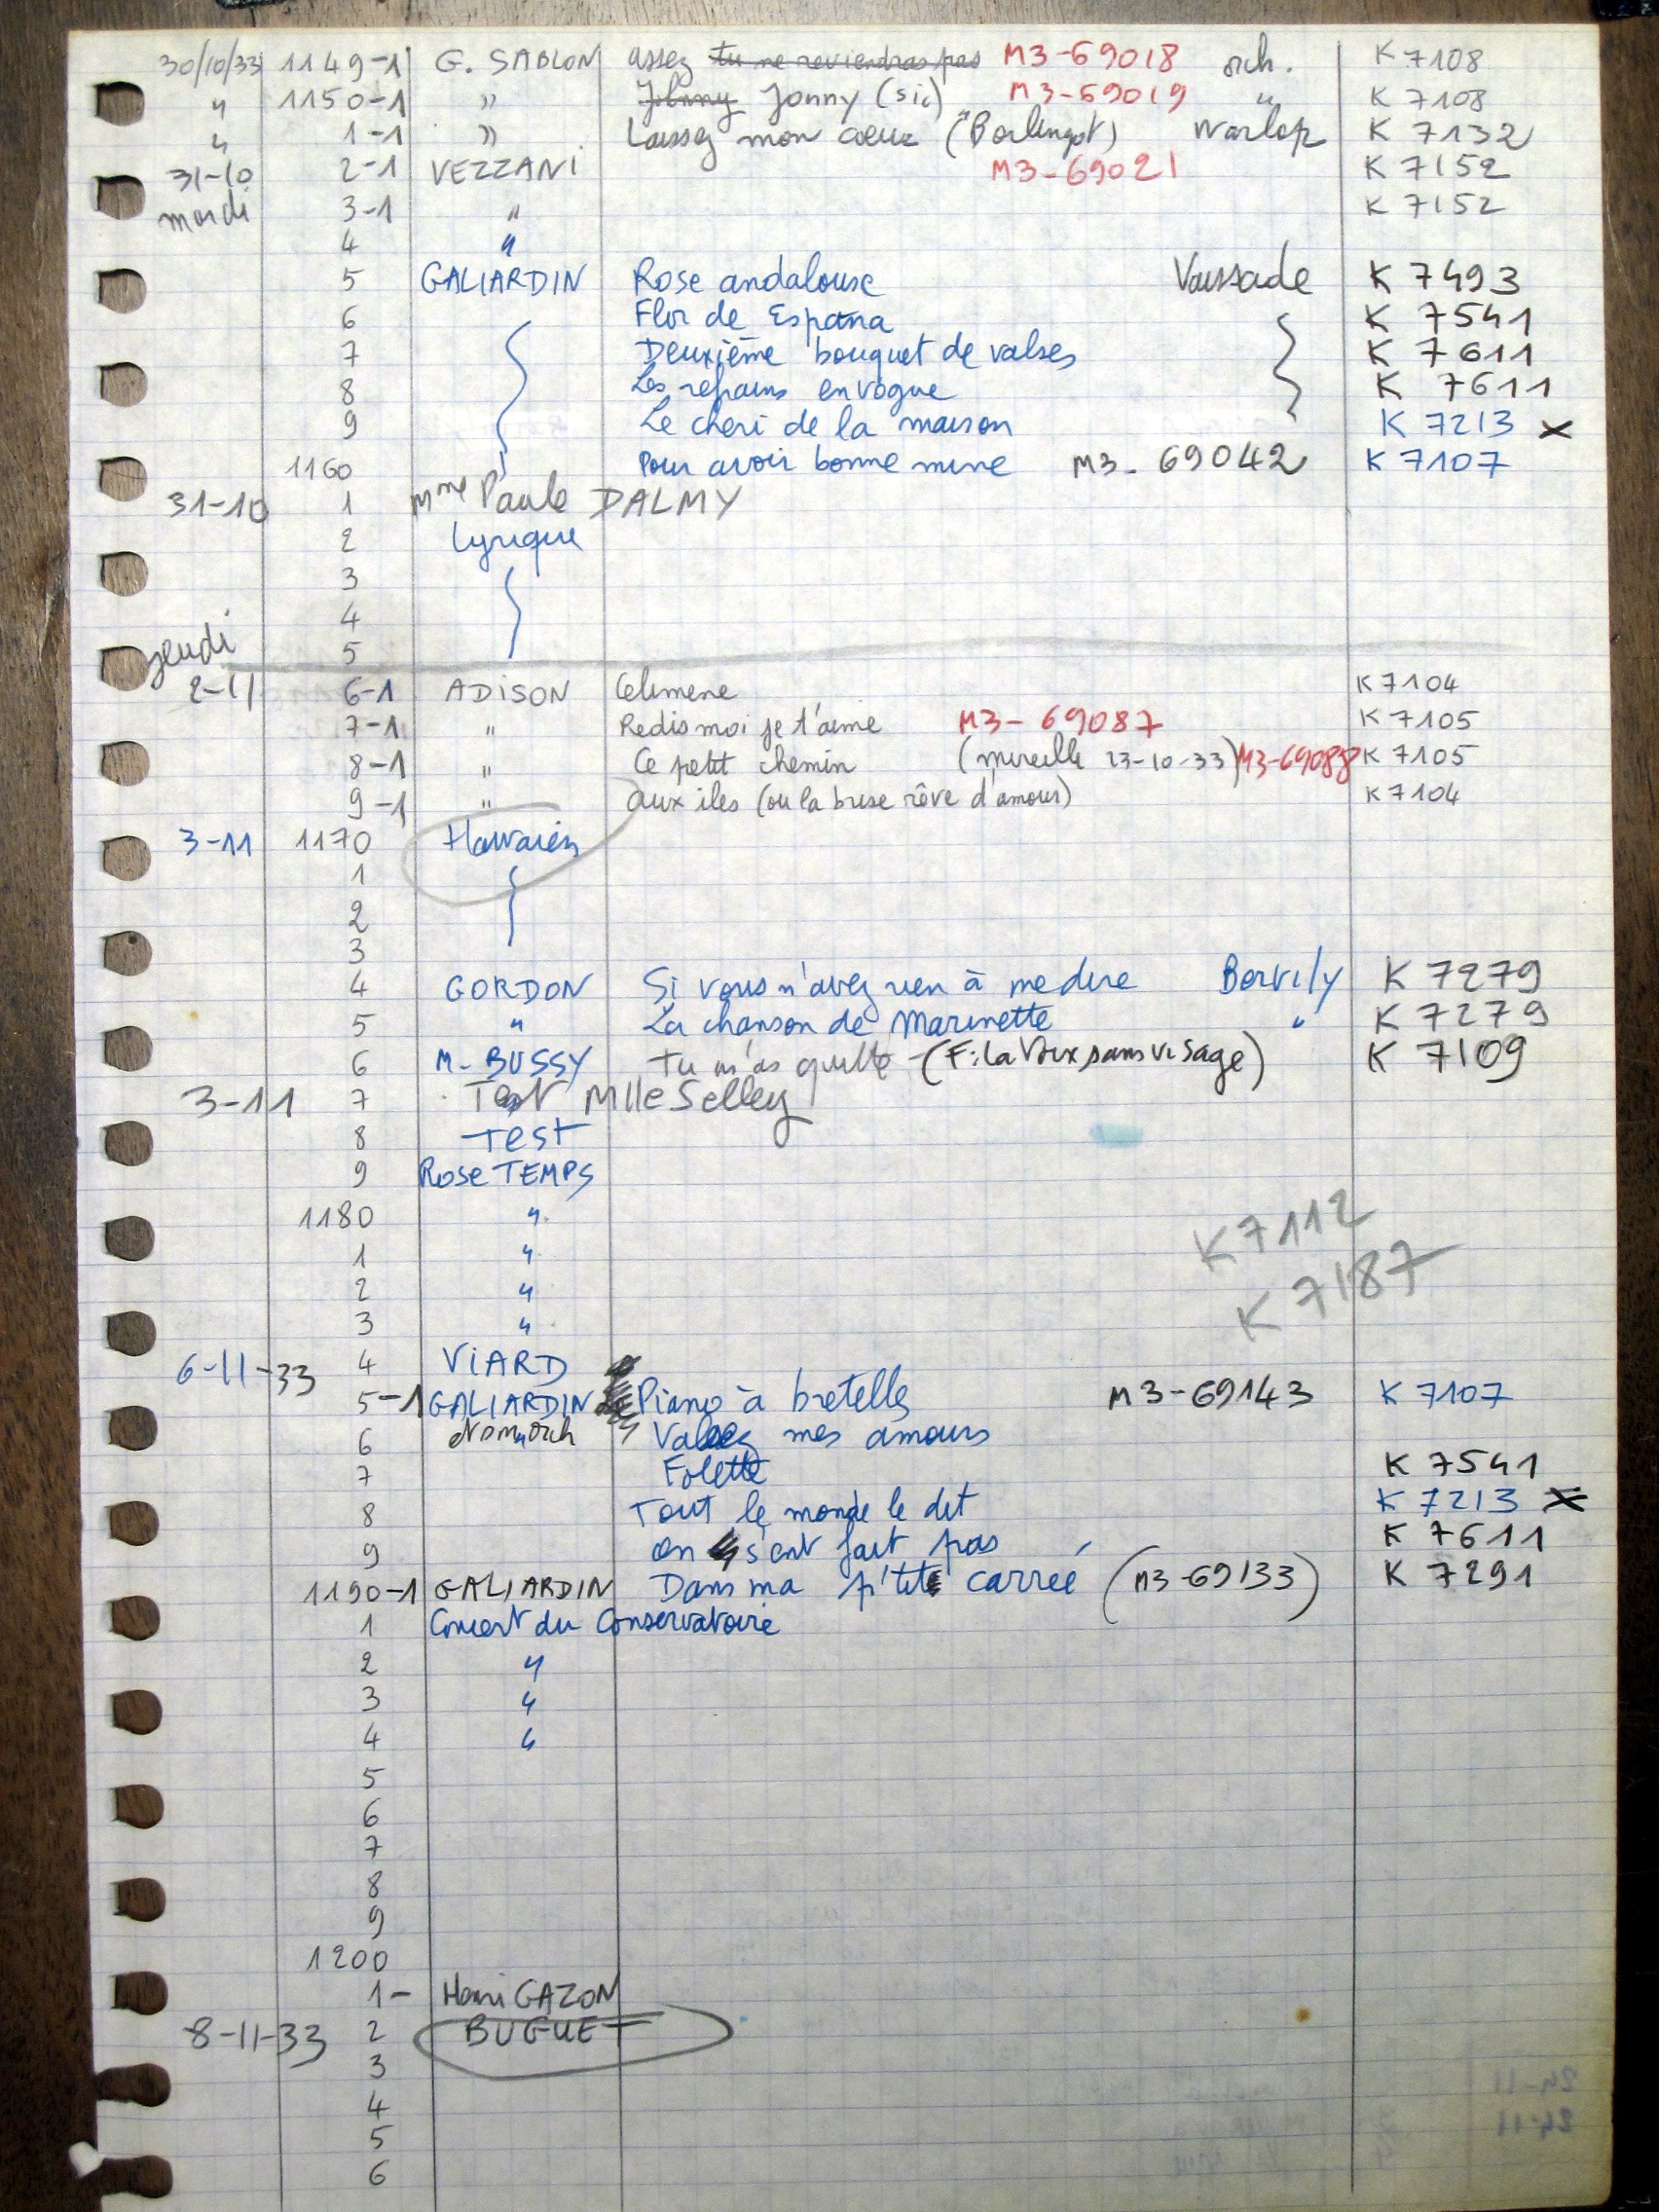 30/10/33 1149-1 G. SABLON assez tu ne reviendras pas M3-69018 orch. K 7108
" 1150-1 " Johnny Jonny (sic) M3-69019 " K 7108
" 1-1 " Laissez mon coeur ("Berlingot") Warlop K 7132
31-10 2-1 VEZZANI M3-69021 K 7152
mardi 3-1 " K 7152
4 "
5 GALIARDIN Rose andalouse Vaissade K 7493
6 Flor de Espana K 7541
7 Deuxième bouquet de valses K 7611
8 Les refrains en vogue K 7611
9 Le cheri de la maison K 7213 x
1160 Pour avoir bonne mine M3-69042 K 7107
31-10 1 Mme Paule DALMY
2 Lyrique
3
4
jeudi 5
2-11 6-1 ADISON Celimene K 7104
7-1 " Redis moi je t'aime M3-69087 K 7105
8-1 " Ce petit chemin (mireille 23-10-33) M3-69088 K 7105
9-1 " Aux iles (ou la brise rêve d'amour) K 7104
3-11 1170 Hawaien
1
2
3
4 GORDON Si vous n'avez rien à me dire Bervily K 7279
5 " La chanson de Marinette " K 7279
6 M. BUSSY Tu m'as quitté (F: La Voix sans visage) K 7109
3-11 7 Test Mlle Selley
8 Test
9 Rose TEMPS
1180 "
1 "
K 7112
2 "
K 7187
3 "
6-11-33 4 VIARD
5-1 GALIARDIN Piano à bretelles M3-69143 K 7107
6 Nom orch Valsez mes amours
7 Folette K 7541
8 Tout le monde le dit K 7213 x
9 on s'ent fait pas K 7611
1190-1 GALIARDIN Dans ma p'tite carrée (M3-69133) K 7291
1 Concert du Conservatoire
2 "
3 "
4 "
5
6
7
8
9
1200
1- Henri GAZON
8-11-33 2 BUGUET
3
4
5
6